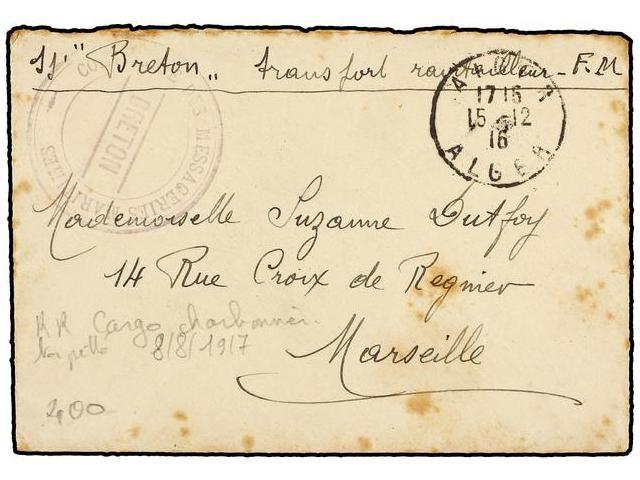 SS "Breton" transport ravitailleur - F.M
MESSAGERIES MARITIMES
BRETON
ALGER
17 15
15 - 12
16
ALGER
Mademoiselle Suzanne Dutfoy
14 Rue Croix de Regnier
Marseille
RR Cargo charbonnier.
8/8/1917